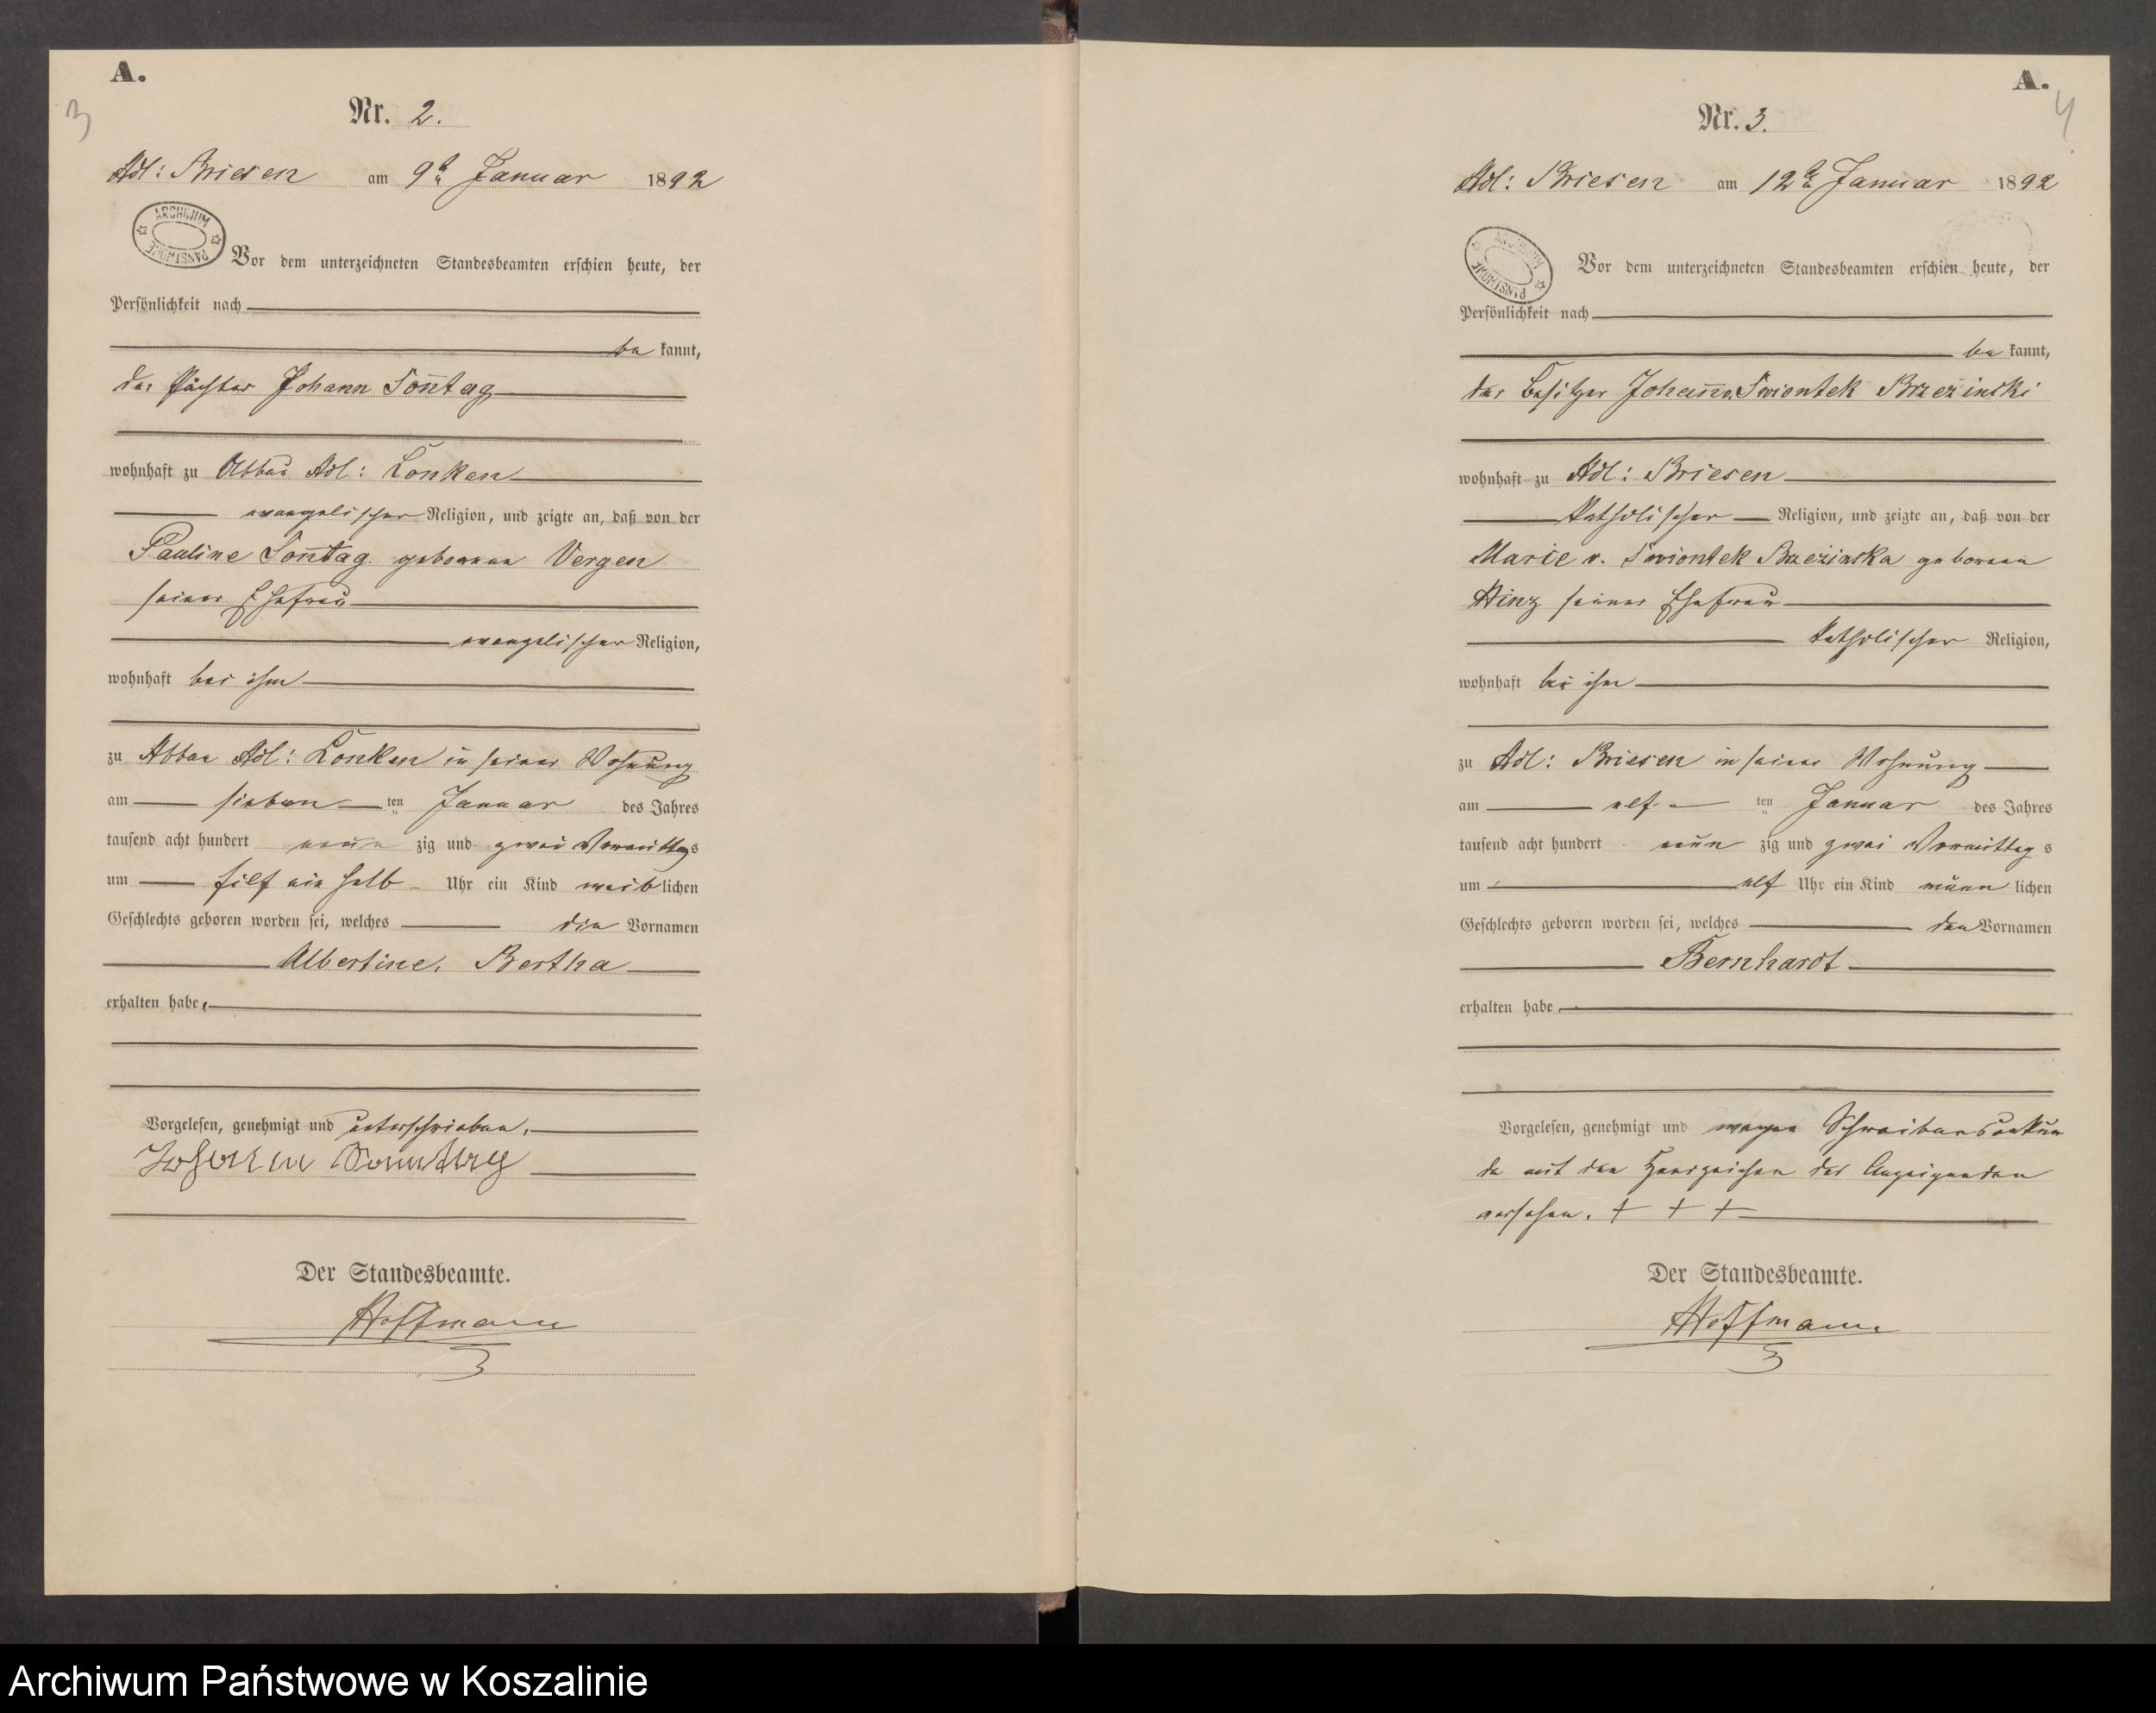 A.
3
Nr. 2.
Adl: Briesen am 9t Januar 1892
ARCHIWUM PAŃSTWOWE
Vor dem unterzeichneten Standesbeamten erschien heute, der
Persönlichkeit nach
be kannt,
der Pächter Johann Sontag
wohnhaft zu Abbau Adl: Lonken
evangelischer Religion, und zeigte an, daß von der
Pauline Sontag geborene Vergen
seiner Ehefrau
evangelischer Religion,
wohnhaft bei ihm
zu Abbau Adl: Lonken in seiner Wohnung
am sieben ten Januar des Jahres
tausend acht hundert neun zig und zwei Vormittags
um ein halb Uhr ein Kind weiblichen
Geschlechts geboren worden sei, welches die Vornamen
Albertine, Bertha
erhalten habe.
Vorgelesen, genehmigt und unterschrieben.
Johann Sonntag
Der Standesbeamte.
Hoffmann
A.
4
Nr. 3.
Adl: Briesen am 12t Januar 1892
ARCHIWUM PAŃSTWOWE
Vor dem unterzeichneten Standesbeamten erschien heute, der
Persönlichkeit nach
be kannt,
der Besitzer Johann v. Swiontek Brzezinski
wohnhaft zu Adl: Briesen
katholischer Religion, und zeigte an, daß von der
Marie v. Swiontek Brzezinska geborene
Hinz seiner Ehefrau
katholischer Religion,
wohnhaft bei ihm
zu Adl: Briesen in seiner Wohnung
am elf ten Januar des Jahres
tausend acht hundert neun zig und zwei Vormittag s
um elf Uhr ein Kind männ lichen
Geschlechts geboren worden sei, welches den Vornamen
Bernhardt
erhalten habe.
Vorgelesen, genehmigt und wegen Schreibensunkun
de mit den Handzeichen des Anzeigenden
versehen. + + +
Der Standesbeamte.
Hoffmann
Archiwum Państwowe w Koszalinie